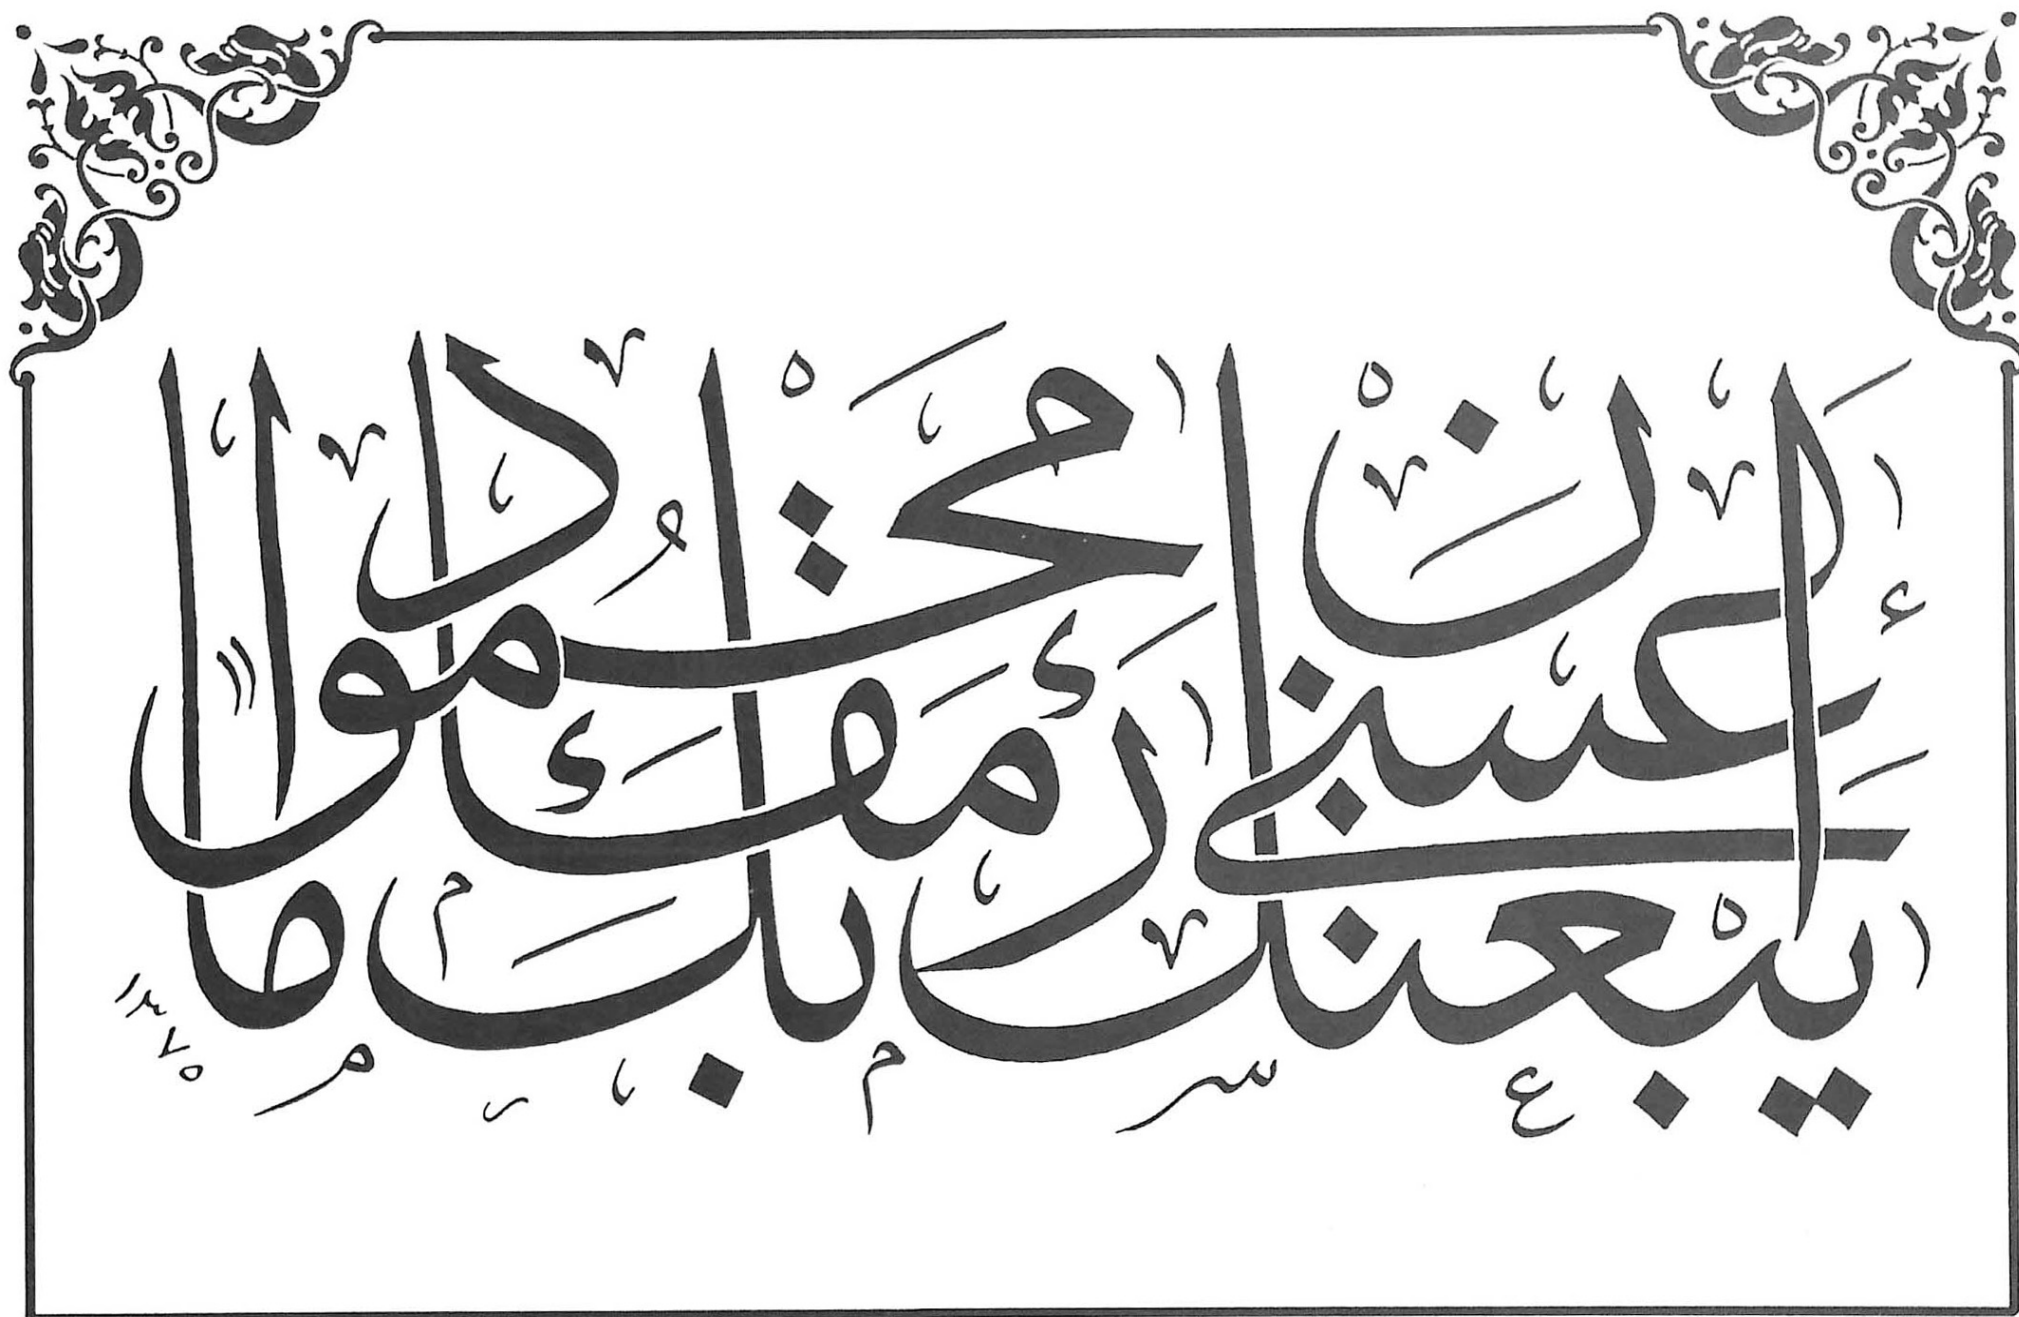 عَسَىٰ أَنْ يَبْعَثَكَ رَبُّكَ مَقَامًا مَحْمُودًا
١٣٧٥